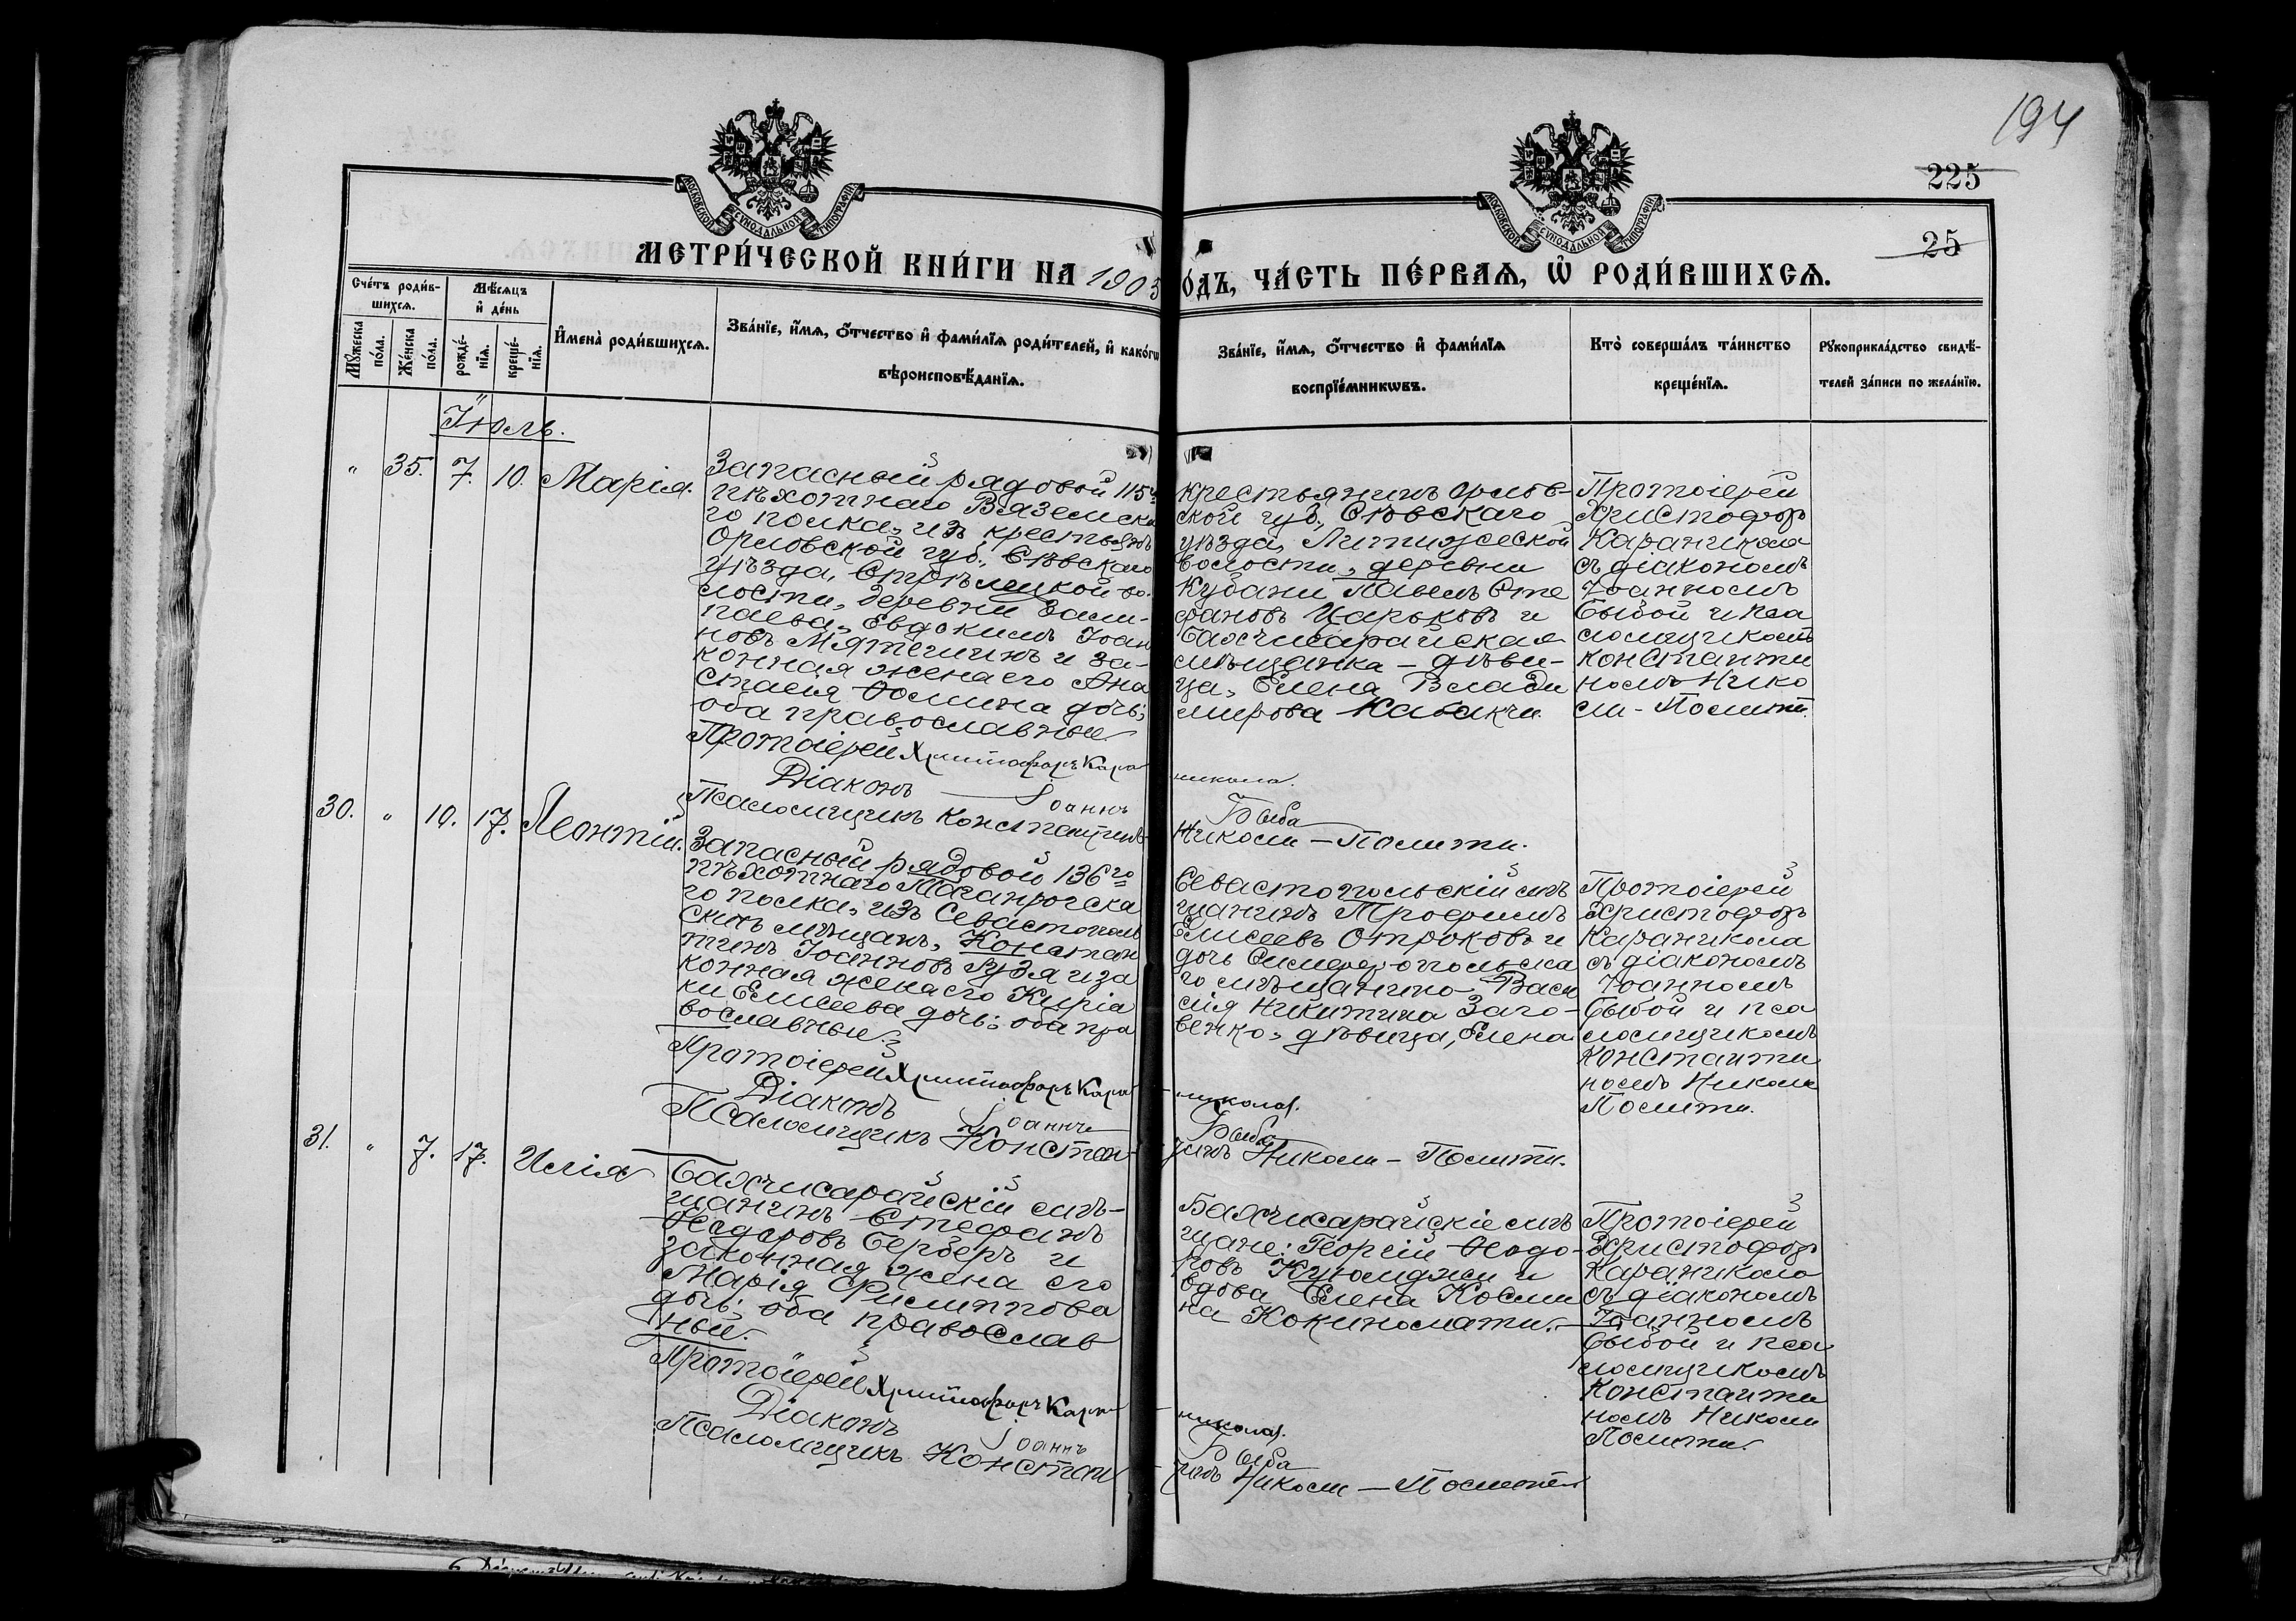 194
225
25
МОСКОВСКОЙ СѴНОДАЛЬНОЙ ТИПОГРАФІИ
МОСКОВСКОЙ СѴНОДАЛЬНОЙ ТИПОГРАФІИ
МЕТРИ́ЧЕСКОЙ КНИ́ГИ НА 1903
О́ДЪ, ЧА́СТЬ ПЕ́РВАѦ, Ѡ҆ РОДИ́ВШИХСѦ.
Сче́тъ роди́в-
шихся.
Мѣ́сяцъ
и҆ де́нь
Мꙋ́жеска
по́ла.
Же́нска
по́ла.
рожде́-
нїя.
креще́-
нїя.
И҆мена̀ роди́вшихся.
Зва́нїе, и҆́мя, ѻ҆́тчество и҆ фами́лїя роди́телей, и҆ како́гѡ
вѣроисповѣ́данїя.
Зва́нїе, и҆́мя, ѻ҆́тчество и҆ фами́лїя
воспрїе́мникѡвъ.
Кто̀ соверша́лъ та́инство
креще́нїя.
Рꙋкоприкла́дство свидѣ́-
телей за́писи по жела́нїю.
Іюль.
" 35. 7. 10. Марія.
Запасный рядовой 115го
пѣхотнаго Вяземска
го полка, изъ крестьянъ
Орловской губ., Сѣвскаго
уѣзда, Стрѣлецкой во-
лости, деревни
Евдокимъ Іоан
новъ Мятечинъ и за-
конная жена его Ана
стасія Ѳомина дочь;
оба православные
Протоіерей Христофоръ Кара
Діаконъ Іоаннъ
Псаломщикъ Константинъ
крестьянинъ Орлов-
ской губ., Сѣвскаго
уѣзда, Литижеской
волости, деревни
Кубани Павелъ Сте
фановъ Царьковъ и
Бахчисарайская
мѣщанка - дѣви-
ца, Елена Влади
мирова Кабакчи.
никола.
Быба
Николи - Полити.
Протоіерей
Христофоръ
Караникола
съ діакономъ
Іоанномъ
Быбой и пса
ломщикомъ
Константи
номъ Нико
ли - Полити.
30. " 10. 17. Леонтій.
Запасный рядовой 136го
пѣхотнаго Таганрогска
го полка, изъ Севастополь
скихъ мѣщанъ, Констан
тинъ Іоанновъ Гузя и за
конная жена его Киріа
ки Елисеева дочь; оба пра
вославные.
Протоіерей Христофоръ Кара
Діаконъ Іоаннъ
Псаломщикъ Констан
Севастопольскій мѣ
щанинъ Трофимъ
Елисеевъ Отроковъ и
дочь Симферопольска
го мѣщанина Васи
лія Никитина Заго-
венко, дѣвица, Елена
никола.
Быба
тинъ Николи - Полити.
Протоіерей
Христофоръ
Караникола
съ діакономъ
Іоанномъ
Быбой и пса
ломщикомъ
Константи
номъ Николи
Полити.
31. " 7. 17. Илія
Бахчисарайскій мѣ-
щанинъ Стефанъ
Ѳеодоровъ Берберъ и
законная жена его
Марія Филиппова
дочь; оба православ
ные.
Протоіерей Христофоръ Кара
Діаконъ Іоаннъ
Псаломщикъ Констан
Бахчисарайскіе мѣ
щане: Георгій Ѳеодо-
ровъ Куюмджи и
вдова Елена Косми
на Кокиномати.
никола.
Быба
тинъ Николи - Полити
Протоіерей
Христофоръ
Караникола
съ діакономъ
Іоанномъ
Быбой и пса
ломщикомъ
Константи
номъ Николи
Полити.